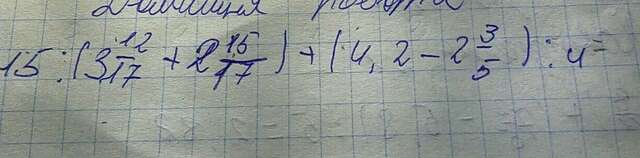 Домашня робота
15 : (3 12/17 + 2 15/17) + (4,2 - 2 3/5) : 4 =